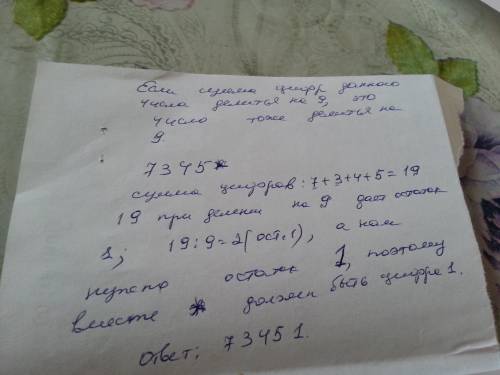 Если сумма цифр данного
числа делиться на 9, это
число тоже делиться на
9.
7345*
сумма цифров: 7+3+4+5=19
19 при делени на 9 дает остаток
1; 19:9=2(ост.1), а нам
нужно остаток 1, поэтому
вместе * должен быть цифра 1.
ответ: 73451.